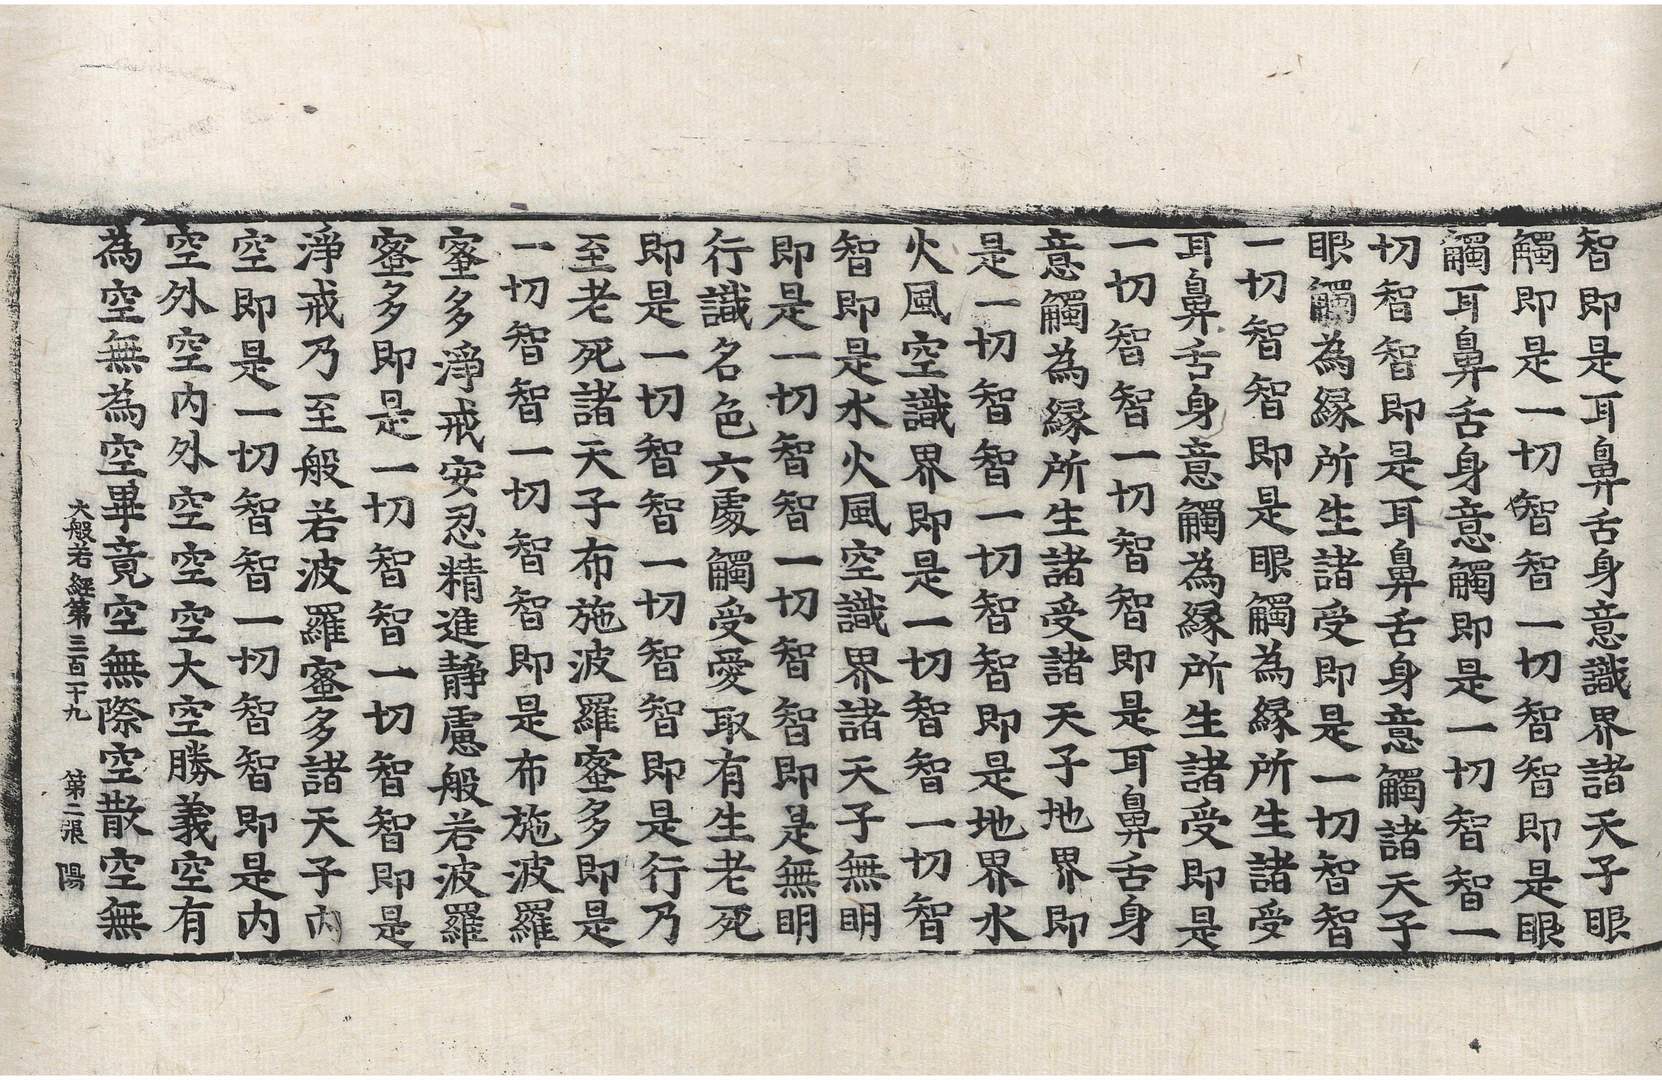 智即是耳鼻舌身意識界諸天子眼
觸即是一切智智一切智智即是眼
觸耳鼻舌身意觸即是一切智智一
切智智即是耳鼻舌身意觸諸天子
眼觸為緣所生諸受即是一切智智
一切智智即是眼觸為緣所生諸受
耳鼻舌身意觸為緣所生諸受即是
一切智智一切智智即是耳鼻舌身
意觸為緣所生諸受諸天子地界即
是一切智智一切智智即是地界水
火風空識界即是一切智智一切智
智即是水火風空識界諸天子無明
即是一切智智一切智智即是無明
行識名色六處觸受愛取有生老死
即是一切智智一切智智即是行乃
至老死諸天子布施波羅蜜多即是
一切智智一切智智即是布施波羅
蜜多淨戒安忍精進靜慮般若波羅
蜜多即是一切智智一切智智即是
淨戒乃至般若波羅蜜多諸天子內
空即是一切智智一切智智即是內
空外空內外空空空大空勝義空有
為空無為空畢竟空無際空散空無
大般若經第三百一十九 第二張 陽